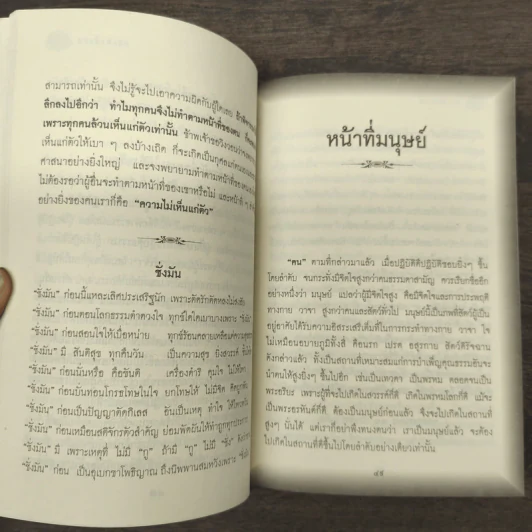 สามารถเท่านั้น จึงไม่รู้จะไปเอาความผิดกับผู้ใดเลย
ลึกลงไปอีกว่า ทำไมทุกคนจึงไม่ทำตามหน้าที่ของตน
เพราะทุกคนล้วนเห็นแก่ตัวเท่านั้น ข้าพเจ้าขอวิงวอน
เห็นแก่ตัวให้เบา ๆ ลงบ้างเถิด ก็จะเกิดเป็นกุศลแก่ตนเอง
ศาสนาอย่างยิ่งใหญ่ และจงพยายามทำตามหน้าที่ของตน
ไม่ต้องรอว่าผู้อื่นจะทำตามหน้าที่ของเขาหรือไม่ และหน้าที่
อย่างยิ่งของคนเราก็คือ “ความไม่เห็นแก่ตัว”
ชั่งมัน
“ชั่งมัน” ก่อนนี้แหละเลิศประเสริฐนัก เพราะตัดรักตัดหลงไม่
“ชั่งมัน” ก่อนตอนโลกธรรมดำดวงใจ ทุกข์ใดใดก็เบาบางเพราะ
“ชั่งมัน” ก่อนสอนใจให้เบื่อหน่าย ทุกข์ร้อนคลายเหลือแค่ความ
“ชั่งมัน” มี สันติสุข ทุกคืนวัน เป็นความสุข ยิ่งสวรรค์
“ชั่งมัน” ก่อนนั้นหรือ คือขันติ เครื่องดำริ คุมใจ ไม่
“ชั่งมัน” ก่อนบั่นทอนโกรธโทษในใจ ยกโทษให้ ไม่มีจิต
“ชั่งมัน” ก่อนเป็นปัญญาตัดกิเลส อันเป็นเหตุ ทำใจ
“ชั่งมัน” ก่อนเหมือนสติจักรตัวสำคัญ ย่อมพัดผันให้ทำถูก
“ชั่งมัน” มี เพราะเหตุที่ ไม่มี “กู” ถ้ามี “กู” ไม่มี “ชั่ง”
“ชั่งมัน” ก่อน เป็นอุเบกขาโพธิญาณ ถึงนิพพานสมหวังเพราะ “ชั่งมัน”
หน้าที่มนุษย์
“คน” ตามที่กล่าวมาแล้ว เมื่อปฏิบัติดีปฏิบัติชอบยิ่งๆ ขึ้น
โดยลำดับ จนกระทั่งมีจิตใจสูงกว่าคนธรรมดาสามัญ ควรเรียกชื่ออีก
อย่างหนึ่งว่า มนุษย์ แปลว่าผู้มีจิตใจสูง คือมีจิตใจและการประพฤติ
ทางกาย วาจา สูงกว่าคนและสัตว์ทั่วไป มนุษย์นี้เป็นภพที่สัตว์ผู้เป็น
อยู่อาศัยได้รับความอิสระเสรีเต็มที่ในการกระทำทางกาย วาจา ใจ
ไม่เหมือนอบายภูมิทั้งสี่ คือนรก เปรต อสุรกาย สัตว์ดิรัจฉาน
ดังกล่าวแล้ว ทั้งเป็นสถานที่เหมาะสมแก่การบำเพ็ญคุณธรรมอันจะ
นำตนให้สูงยิ่งขึ้นไปอีก เช่นเป็นเทวดา เป็นพรหม ตลอดจนเป็น
พระอริยะ เพราะผู้ที่จะไปเกิดในสวรรค์ก็ดี เกิดในพรหมโลกก็ดี แม้จะ
เป็นพระอรหันต์ก็ดี ต้องเป็นมนุษย์ก่อนแล้ว จึงจะไปเกิดในสถานที่
สูงๆ นั้นได้ แต่เราก็อย่าพึงทะนงตนว่า เราเป็นมนุษย์แล้ว จะต้อง
ไปเกิดในสถานที่ดีขึ้นไปโดยลำดับอย่างเดียวเท่านั้น